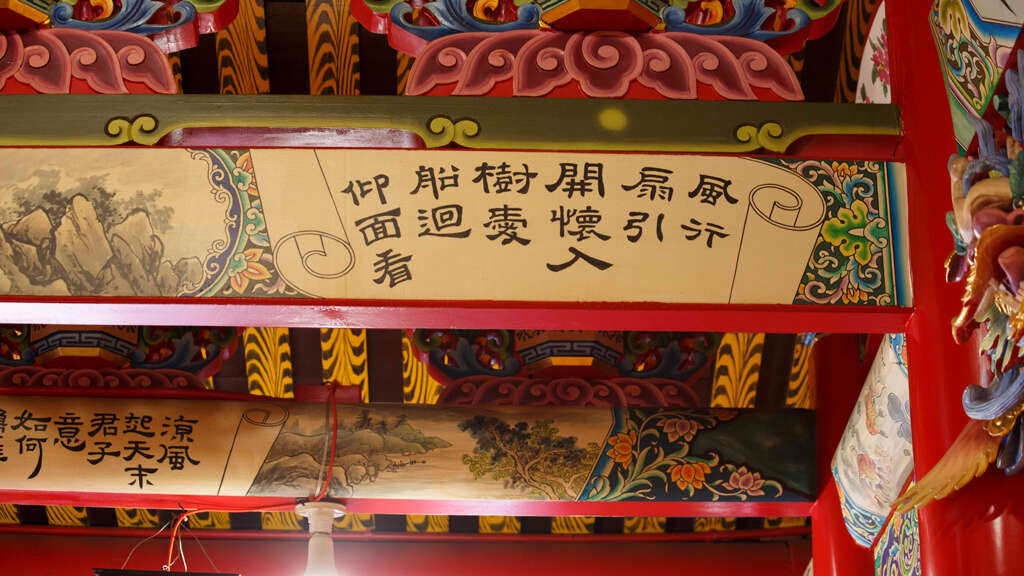 風行
扇引
開懷入
樹
船迴
仰面看
涼風
起天末
君子
意
如何